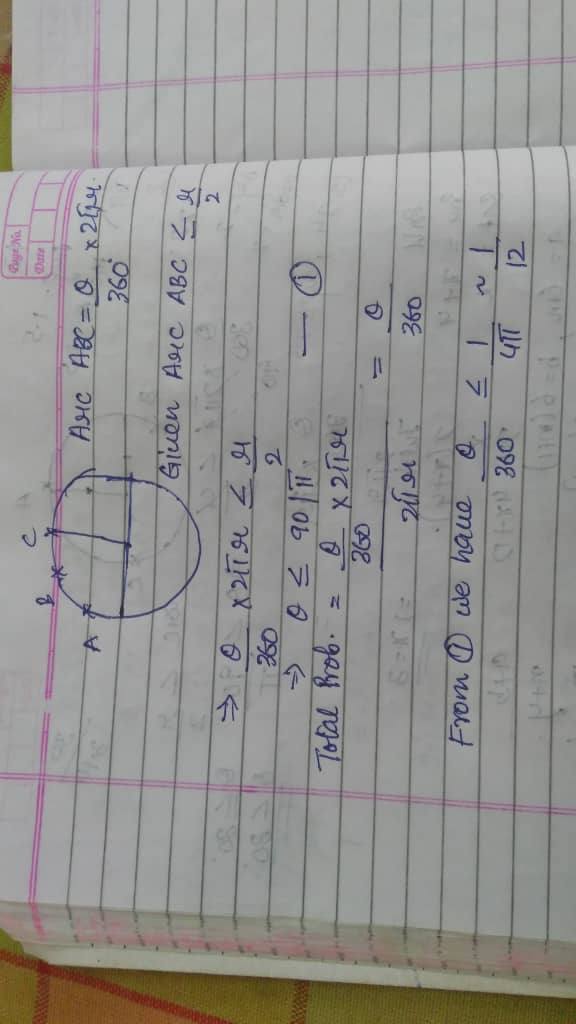 Page No.
Date
A B C
Arc ABC = θ/360° × 2πr.
Given Arc ABC ≤ r/2
⇒ θ/360 × 2πr ≤ r/2
⇒ θ ≤ 90/π — ①
Total Prob. = θ/360 × 2πr / 2πr = θ/360
From ① we have θ/360 ≤ 1/4π ~ 1/12